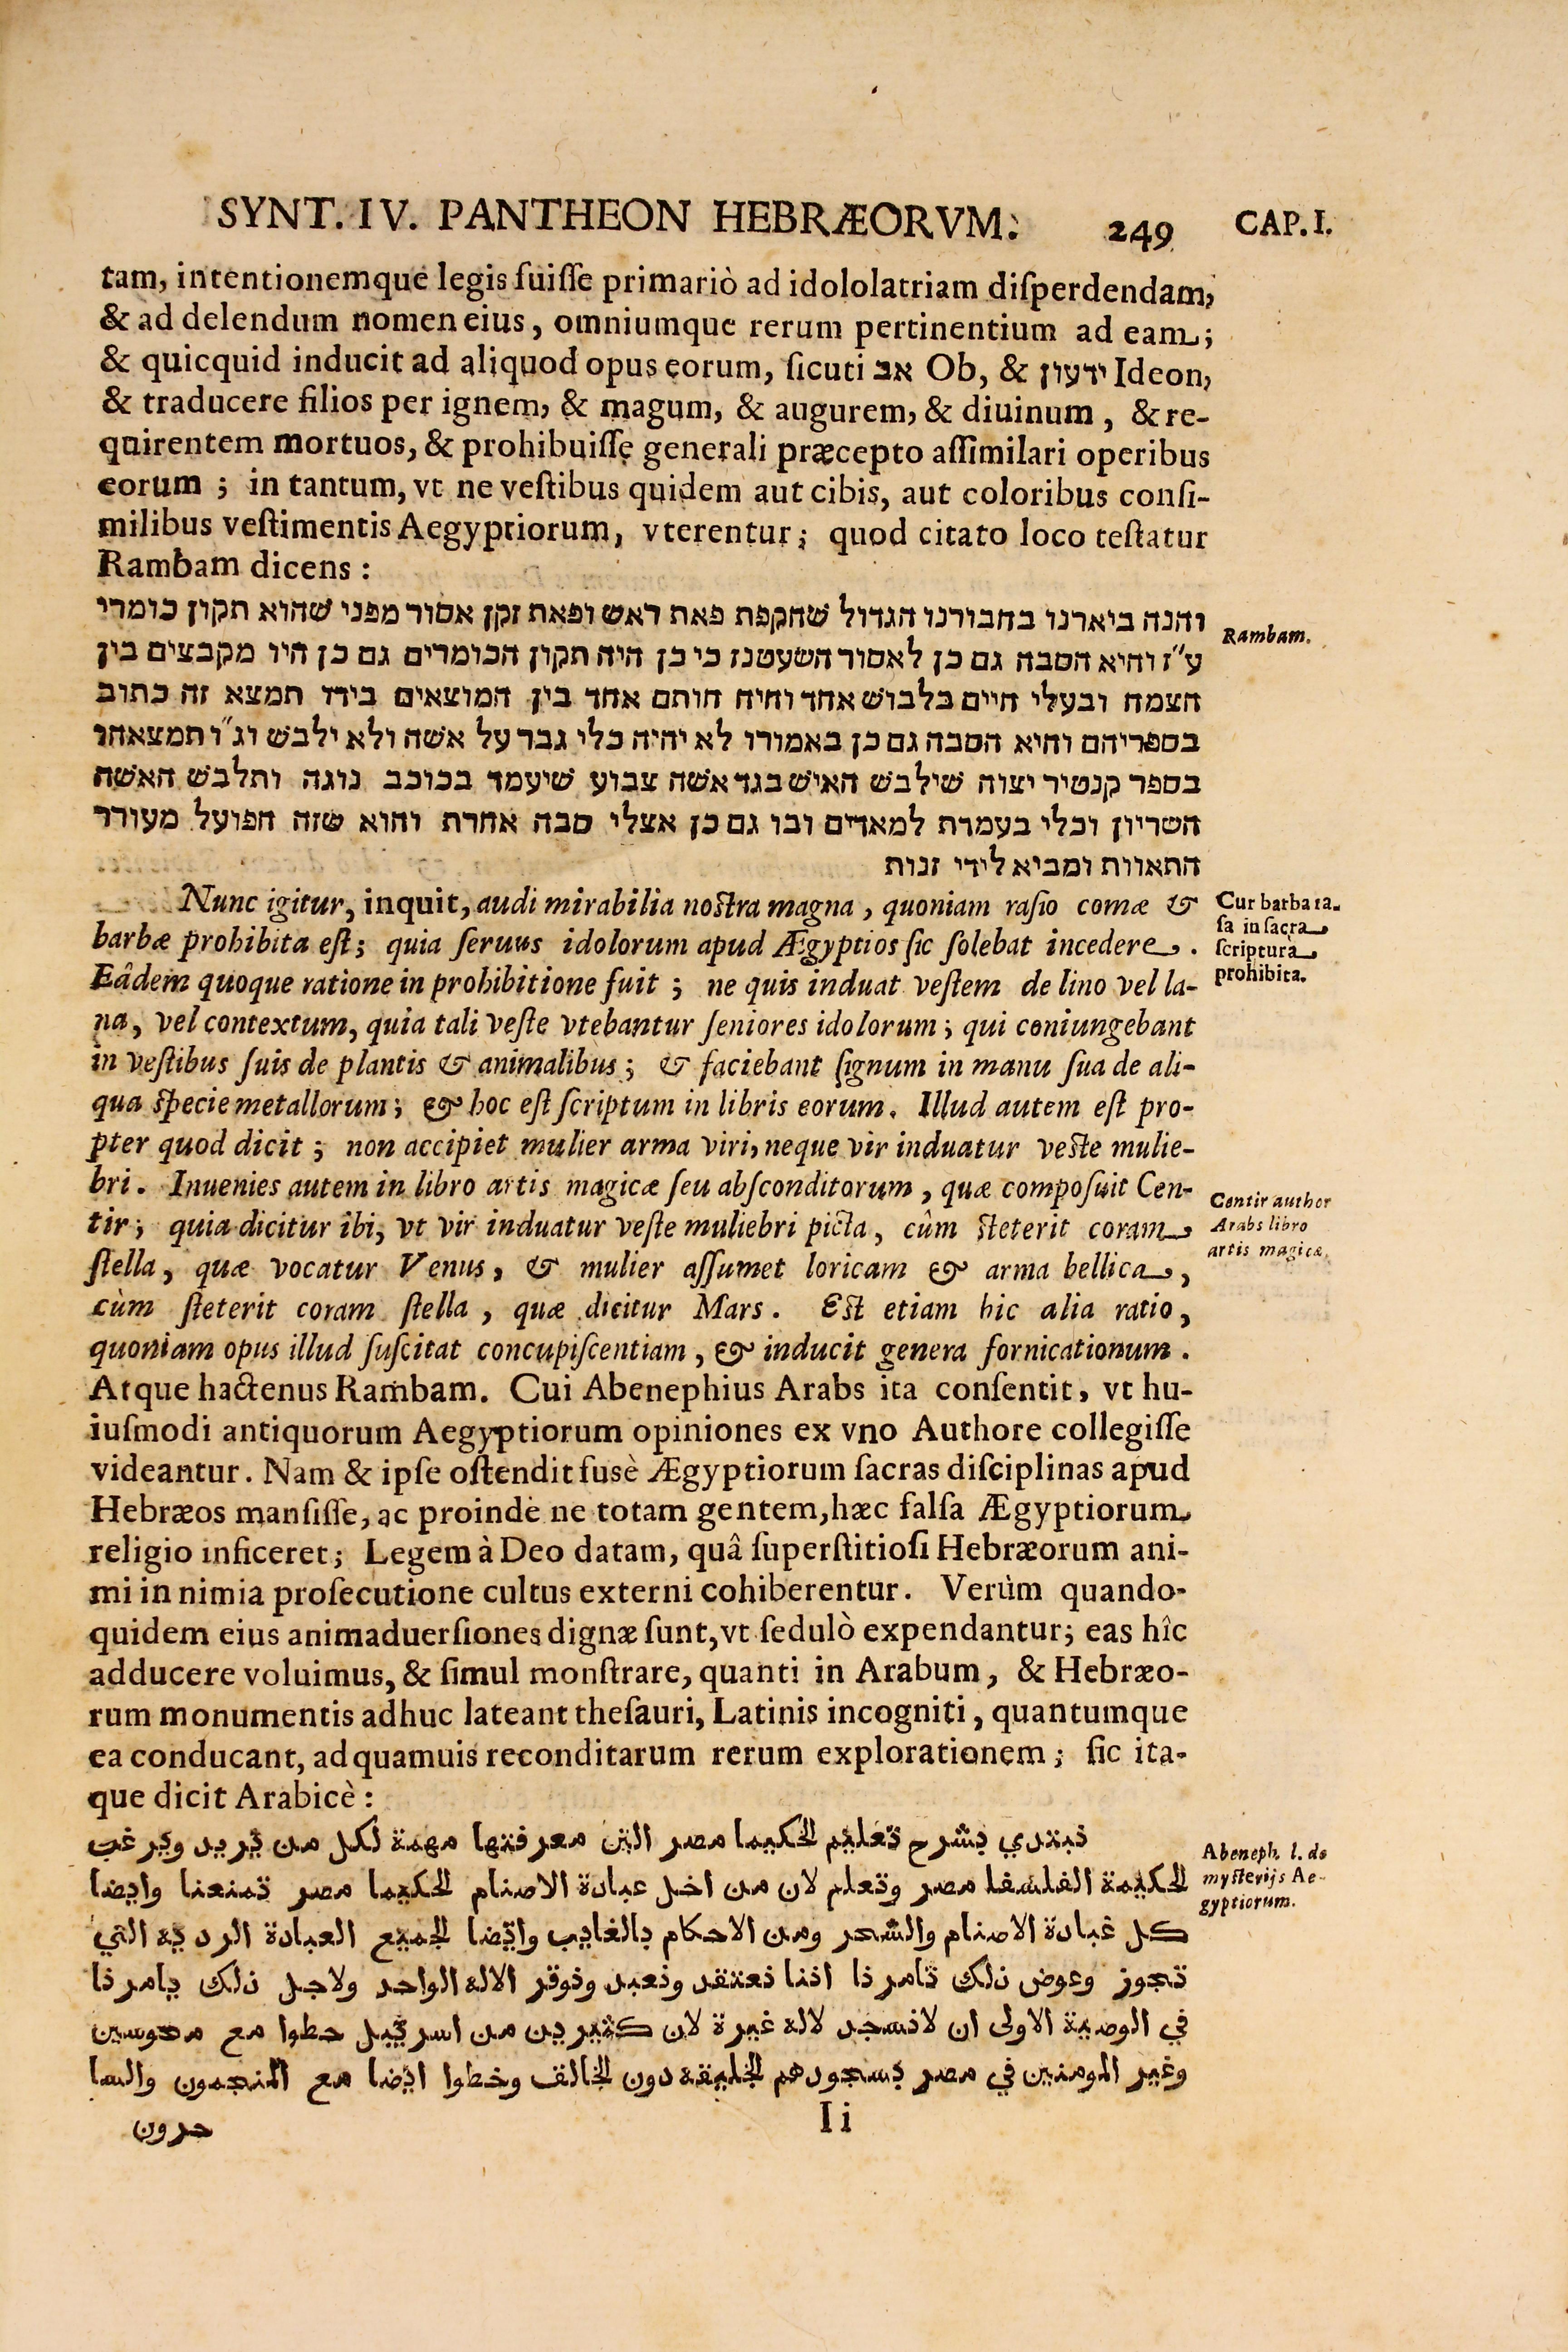 SYNT. IV. PANTHEON HEBRÆORVM. 249 CAP. I.
tam, intentionemque legis fuiſſe primariò ad idololatriam diſperdendam,
& ad delendum nomen eius, omniumque rerum pertinentium ad eam;
& quicquid inducit ad aliquod opus eorum, ſicuti אב Ob, & ידעון Ideon,
& traducere filios per ignem, & magum, & augurem, & diuinum, & re-
quirentem mortuos, & prohibuiſſe generali præcepto aſſimilari operibus
eorum; in tantum, vt ne veſtibus quidem aut cibis, aut coloribus conſi-
milibus veſtimentis Aegyptiorum, vterentur; quod citato loco teſtatur
Rambam dicens:
והנה ביארנו בחבורנו הגדול שהקפת פאת ראש ופאת זקן אסור מפני שהוא תקון כומרי
Rambam.
ע״ז והיא הסבה גם כן לאסור השעטנז כי כן היה תקון הכומרים גם כן היו מקבצים בין
הצמח ובעלי חיים בלבוש אחד והיה חותם אחד בין המוצאים בידו תמצא זה כתוב
בספריהם והיא הסבה גם כן באמורו לא יהיה כלי גבר על אשה ולא ילבש וג״ו תמצאהו
בספר קנטיר יצוה שילבש האיש בגד אשה צבוע שיעמד בכוכב נוגה ותלבש האשה
השריון וכלי בעמרת למאדים ובו גם כן אצלי סבה אחרת והוא שזה הפועל מעורר
התאוות ומביא לידי זנות
Nunc igitur, inquit, audi mirabilia noſtra magna, quoniam raſio comæ &
barbæ prohibita eſt; quia ſeruus idolorum apud Ægyptios ſic ſolebat incedere.
Eâdem quoque ratione in prohibitione fuit; ne quis induat veſtem de lino vel la-
na, vel contextum, quia tali veſte vtebantur ſeniores idolorum; qui coniungebant
in veſtibus ſuis de plantis & animalibus; & faciebant ſignum in manu ſua de ali-
qua ſpecie metallorum; & hoc eſt ſcriptum in libris eorum. Illud autem eſt pro-
pter quod dicit; non accipiet mulier arma viri, neque vir induatur veſte mulie-
bri. Inuenies autem in libro artis magicæ ſeu abſconditorum, quæ compoſuit Cen-
tir; quia dicitur ibi, vt vir induatur veſte muliebri picta, cûm ſteterit coram
ſtella, quæ vocatur Venus, & mulier aſſumet loricam & arma bellica,
cùm ſteterit coram ſtella, quæ dicitur Mars. Eſt etiam hic alia ratio,
quoniam opus illud ſuſcitat concupiſcentiam, & inducit genera fornicationum.
Cur barba ra-
ſa in ſacra
ſcriptura
prohibita.
Centir author
Arabs libro
artis magicæ.
Atque hactenus Rambam. Cui Abenephius Arabs ita conſentit, vt hu-
iuſmodi antiquorum Aegyptiorum opiniones ex vno Authore collegiſſe
videantur. Nam & ipſe oſtendit fusè Ægyptiorum ſacras diſciplinas apud
Hebræos manſiſſe, ac proinde ne totam gentem, hæc falſa Ægyptiorum
religio inficeret; Legem à Deo datam, quâ ſuperſtitioſi Hebræorum ani-
mi in nimia proſecutione cultus externi cohiberentur. Verùm quando-
quidem eius animaduerſiones dignæ ſunt, vt ſedulò expendantur; eas hîc
adducere voluimus, & ſimul monſtrare, quanti in Arabum, & Hebræo-
rum monumentis adhuc lateant theſauri, Latinis incogniti, quantumque
ea conducant, ad quamuis reconditarum rerum explorationem; ſic ita-
que dicit Arabicè:
نبتدي بشرح تعليم الحكيما مصر التي معرفتها مهمة لكل من يريد ويرغب
الحكيمة الفلسفا مصر وتعلم لان من اخل عبادة الاصنام الحكيما مصر تمنعنا وايضا
كل عبادة الاصنام والسحر ومن الاحكام بالغايب وايضا لجميع العبادة الردية التي
تجوز وعوض ذلك تامرنا اننا نعتقد ونعبد ونوقر الاله الواحد ولاجل ذلك يامرنا
في الوصية الاولى ان لا نسجد لاله غيرة لان كثيرين من اسرييل حطوا مع مجوسين
وغير المومنين في مصر بسجودهم الخليقه دون الخالف وخطوا ايضا مع المنجمون والسا
Abeneph. l. de
myſterijs Ae-
gyptiorum.
Ii
حرون